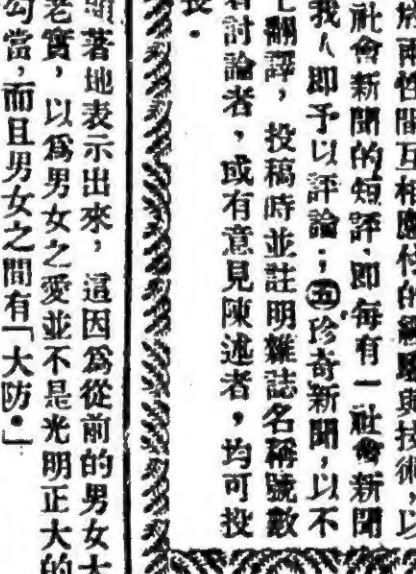 於兩性間互相應付的經驗與技術，以
社會新聞的短評，即每有一社會新聞
我人即予以評論；㊄珍奇新聞，以不
上翻譯，投稿時並註明雜誌名稱號數
討論者，或有意見陳述者，均可投
長。
著地表示出來，這因爲從前的男女大
老實，以爲男女之愛並不是光明正大的
勾當，而且男女之間有「大防。」